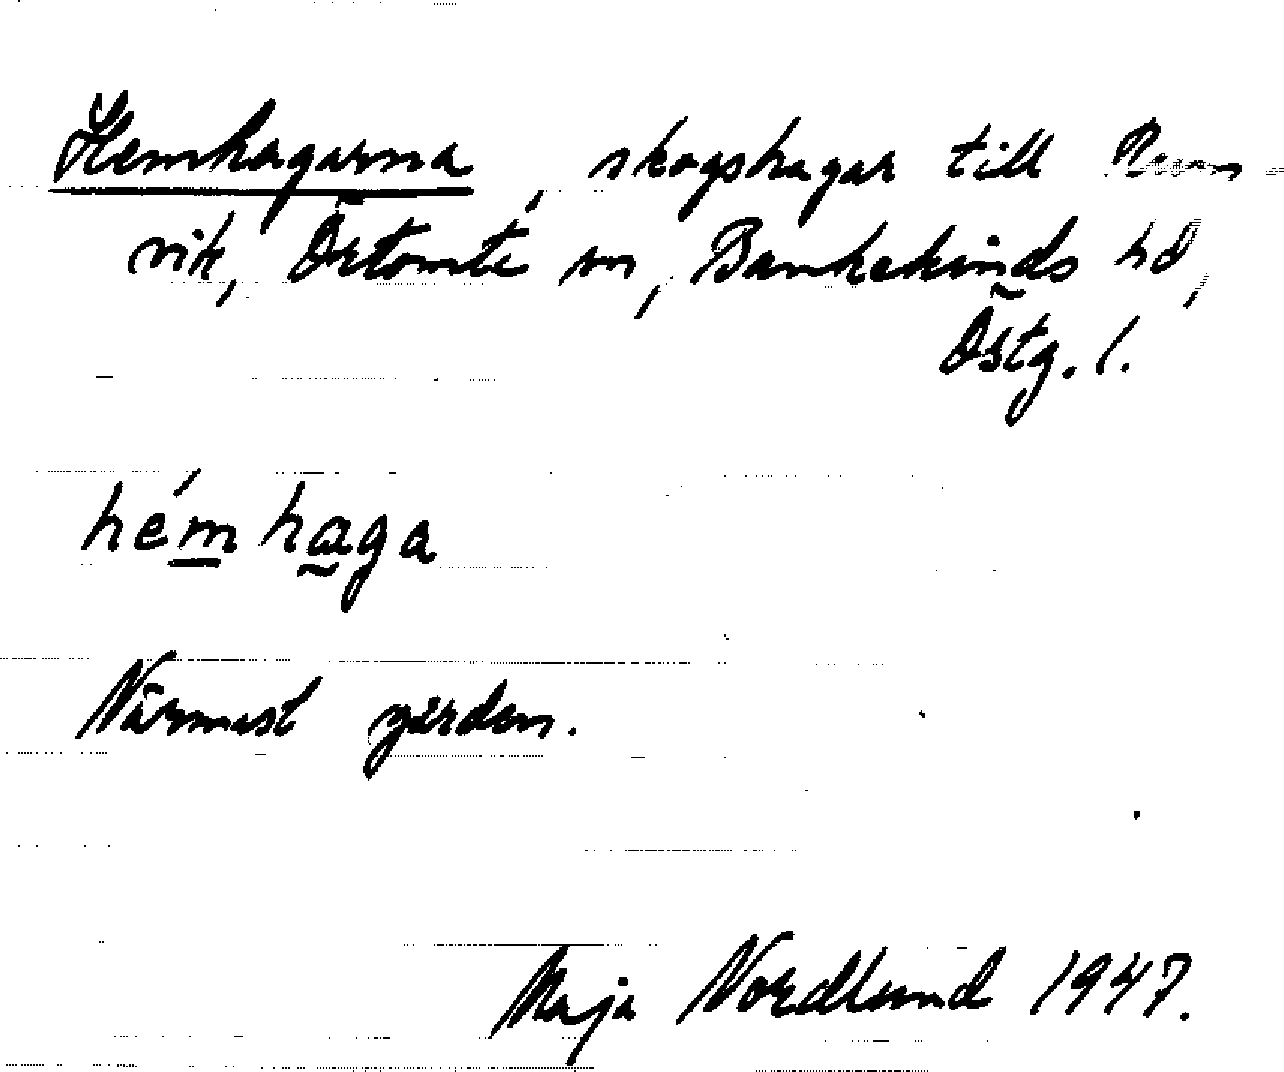 Hemhagarna, skogshagar till
vik, Örtomta sn, Bankekinds hd,
Östg. l.
hém haga
Närmast gården.
Maja Nordlund 1947.